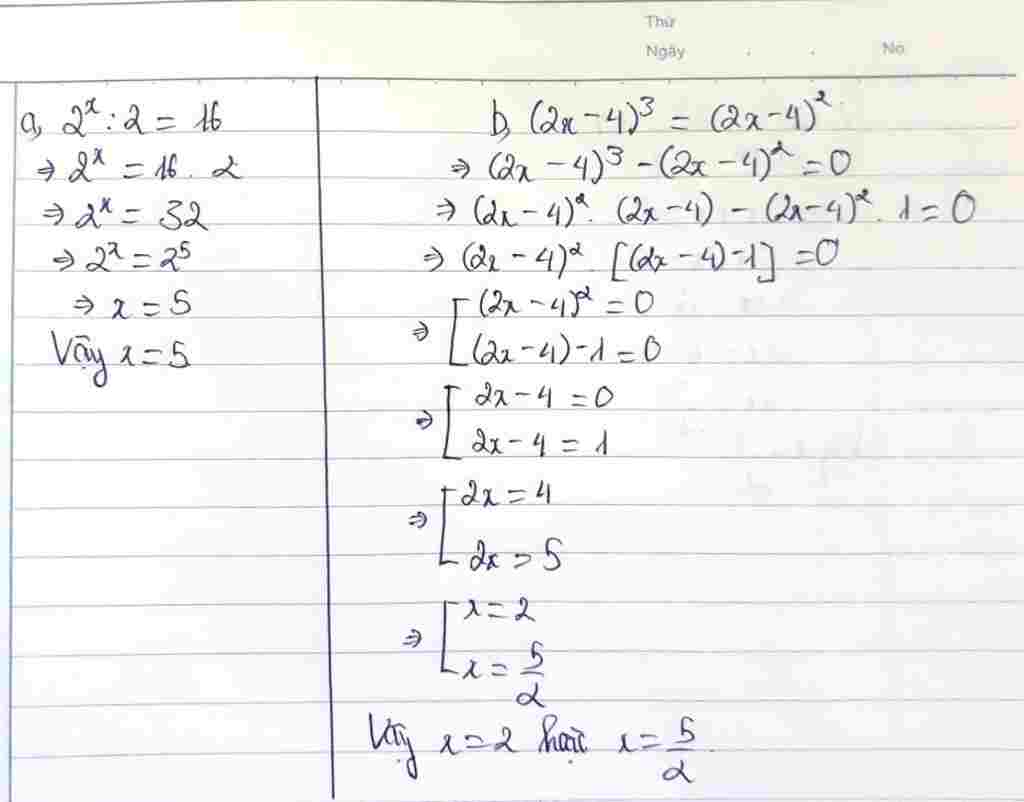 Thứ
Ngày . . No
a, 2^x : 2 = 16
⇒ 2^x = 16 . 2
⇒ 2^x = 32
⇒ 2^x = 2^5
⇒ x = 5
Vậy x = 5
b, (2x - 4)^3 = (2x - 4)^2
⇒ (2x - 4)^3 - (2x - 4)^2 = 0
⇒ (2x - 4)^2 . (2x - 4) - (2x - 4)^2 . 1 = 0
⇒ (2x - 4)^2 . [(2x - 4) - 1] = 0
⇒ [ (2x - 4)^2 = 0
(2x - 4) - 1 = 0
⇒ [ 2x - 4 = 0
2x - 4 = 1
⇒ [ 2x = 4
2x = 5
⇒ [ x = 2
x = 5/2
Vậy x = 2 hoặc x = 5/2.